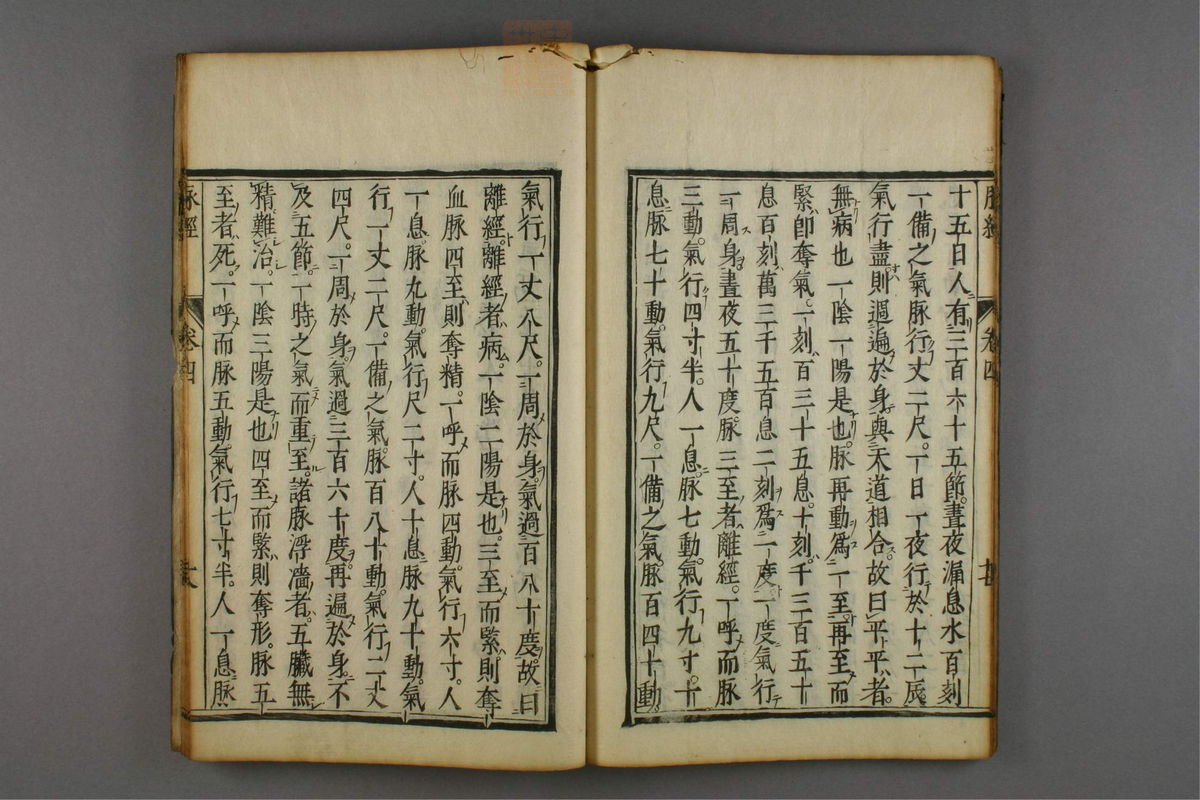 十五日人有三百六十五節。晝夜漏息水百刻
一備之氣脉行丈二尺。一日一夜行於十二辰
氣行盡。則週遍於身與天道相合。故曰平平者。
無病也一陰一陽是也。脉再動爲一至。再至而
緊即奪氣。一刻百三十五息。十刻千三百五十
息百刻萬三千五百息二刻爲一度一度氣行
一周身晝夜五十度脉三至者離經。一呼而脉
三動。氣行四寸半。人一息脉七動。氣行九寸。十
息脉七十動。氣行九尺。一備之氣。脉百四十動。
卷四
氣行一丈八尺。一周於身。氣過百八十度。故曰
離經。離經者病。一陰二陽是也。三至而緊則奪
血脉四至則奪精。一呼而脉四動。氣行六寸。人
一息脉九動。氣行尺二寸。人十息脉九十動。氣
行一丈二尺。一備之氣。脉百八十動。氣行二丈
四尺。一周於身。氣過三百六十度。再遍於身。不
及五節。一時之氣而重至。諸脉浮濇者。五臟無
精難治。一陰三陽是也四至而緊則奪形。脉五
至者死。一呼而脉五動。氣行七寸半。人一息脉
脉經
卷四